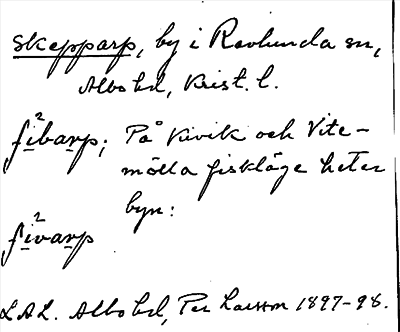 Skepparp, by i Ravlunda sn,
Albo hd, Krist. l.
fi²barp; På Kivik och Vite-
mölla fiskläge heter
byn:
fi²varp
L.A.L. Albo hd, Per Larsson 1897-98.